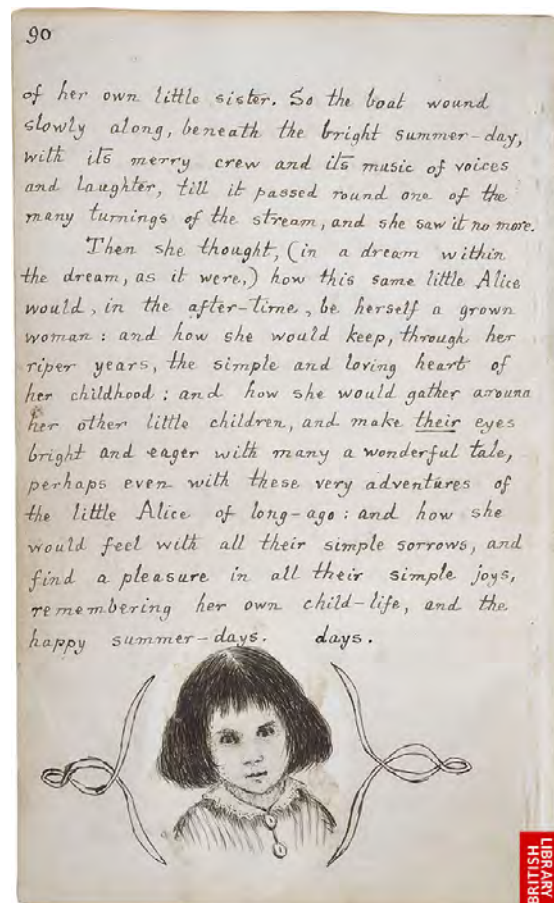 90
of her own little sister. So the boat wound
slowly along, beneath the bright summer-day,
with its merry crew and its music of voices
and laughter, till it passed round one of the
many turnings of the stream, and she saw it no more.
Then she thought, (in a dream within
the dream, as it were,) how this same little Alice
would, in the after-time, be herself a grown
woman: and how she would keep, through her
riper years, the simple and loving heart of
her childhood: and how she would gather around
her other little children, and make their eyes
bright and eager with many a wonderful tale,
perhaps even with these very adventures of
the little Alice of long-ago: and how she
would feel with all their simple sorrows, and
find a pleasure in all their simple joys,
remembering her own child-life, and the
happy summer-days. days.
BRITISH
LIBRARY